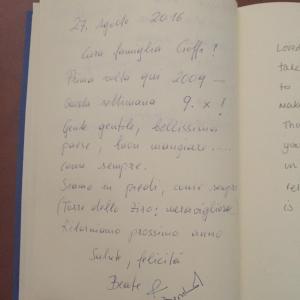 27. Agosto 2016
Cara famiglia Cioffi!
Prima volta qui 2009 —
Questa settimana 9. x!
Gente gentile, bellissimo
paese, buon mangiare....
come sempre.
Siamo in piedi, come sempre
(Torre dello Ziro: meravigliosa
Ritorniamo prossimo anno
Salute, felicità
Beate
Loved
take
to
Mak
Tha
you
un
rel
is